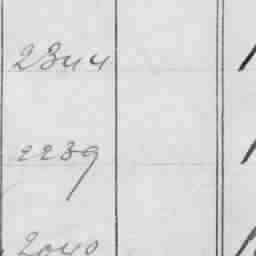 2344
2239
2040